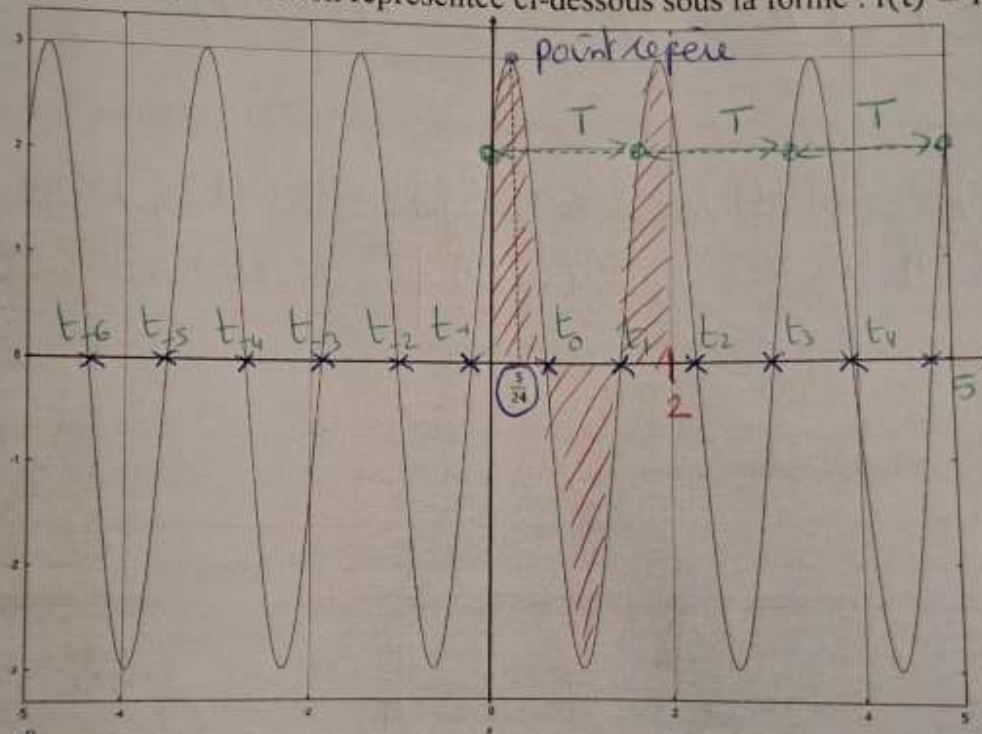 représentée ci-dessous sous la forme : f(t) =
3
point repère
T T T
2
1
t-6 t-5 t-4 t-3 t-2 t-1 t0 t1 t2 t3 t4
0
5/24
2
5
-1
-2
-3
-5 -4 -2 0 2 4 5